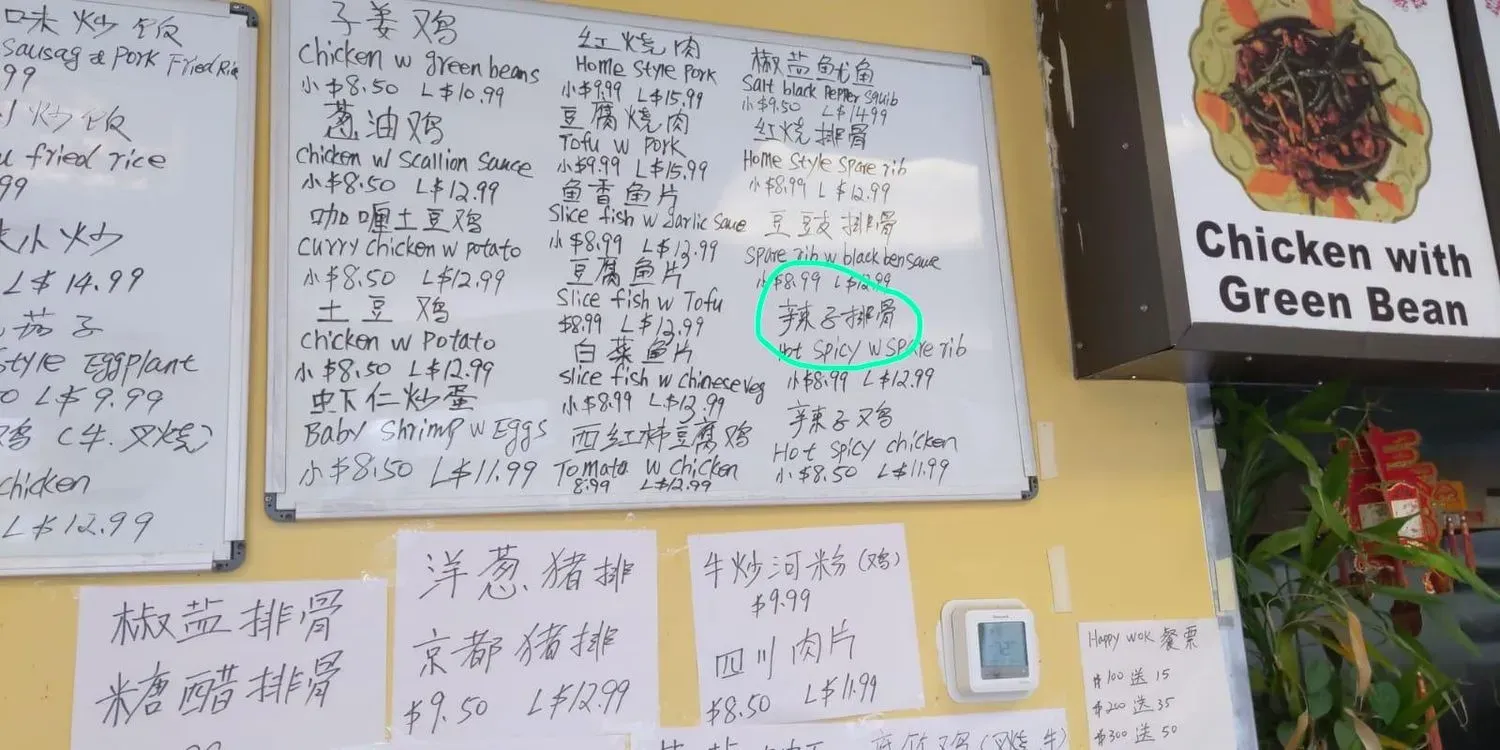 味炒饭
Sausag & Pork Fried Rice
99
炒饭
fried rice
99
小炒
L $14.99
茄子
Style Eggplant
L $9.99
鸡 (牛.叉烧)
chicken
L $12.99
子姜鸡
Chicken w green beans
小 $8.50 L $10.99
葱油鸡
Chicken w/ Scallion Sauce
小 $8.50 L $12.99
咖喱土豆鸡
Curry chicken w potato
小 $8.50 L $12.99
土豆鸡
Chicken w Potato
小 $8.50 L $12.99
虾仁炒蛋
Baby Shrimp w Eggs
小 $8.50 L $11.99
红烧肉
Home Style Pork
小 $9.99 L $15.99
豆腐烧肉
Tofu w Pork
小 $9.99 L $15.99
鱼香鱼片
Slice fish w garlic Saue
小 $8.99 L $12.99
豆腐鱼片
Slice fish w Tofu
$8.99 L $12.99
白菜鱼片
Slice fish w chinese veg
小 $8.99 L $12.99
西红柿豆腐鸡
Tomata w chicken
8.99 L $12.99
椒盐鱿鱼
Salt black Pepper Squib
小 $9.50 L $14.99
红烧排骨
Home Style Spare rib
小 $8.99 L $12.99
豆豉排骨
Spare rib w black ben saue
小 $8.99 L $12.99
辣子排骨
Hot Spicy w Spare rib
小 $8.99 L $12.99
辣子鸡
Hot Spicy chicken
小 $8.50 L $11.99
Chicken with
Green Bean
椒盐排骨
糖醋排骨
洋葱猪排
京都猪排
$9.50 L $12.99
牛炒河粉 (鸡)
$9.99
四川肉片
$8.50 L $11.99
Happy Wok 餐票
$100 送 15
$200 送 35
$300 送 50